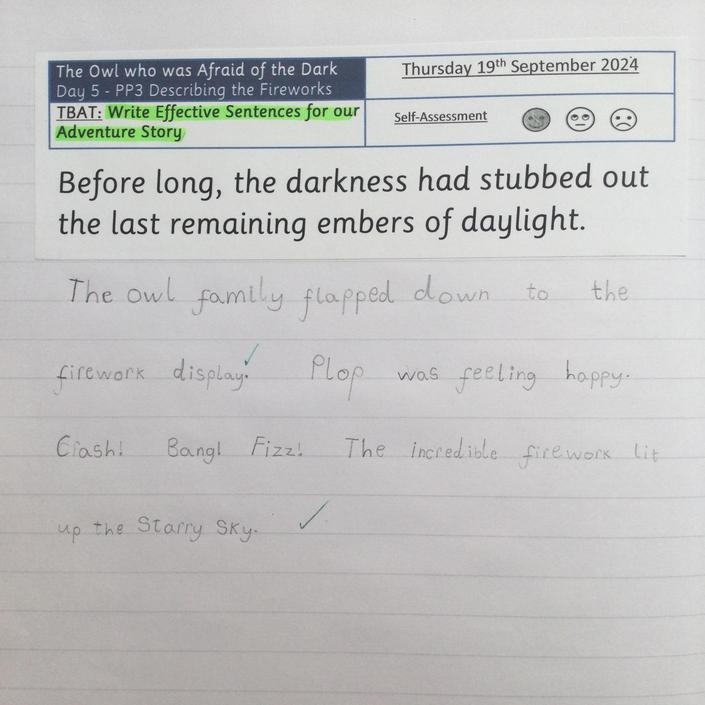 The Owl who was Afraid of the Dark
Day 5 - PP3 Describing the Fireworks
Thursday 19th September 2024
TBAT: Write Effective Sentences for our
Adventure Story
Self-Assessment
Before long, the darkness had stubbed out
the last remaining embers of daylight.
The owl family flapped down to the
firework display. Plop was feeling happy.
Crash! Bang! Fizz! The incredible firework lit
up the Starry Sky.